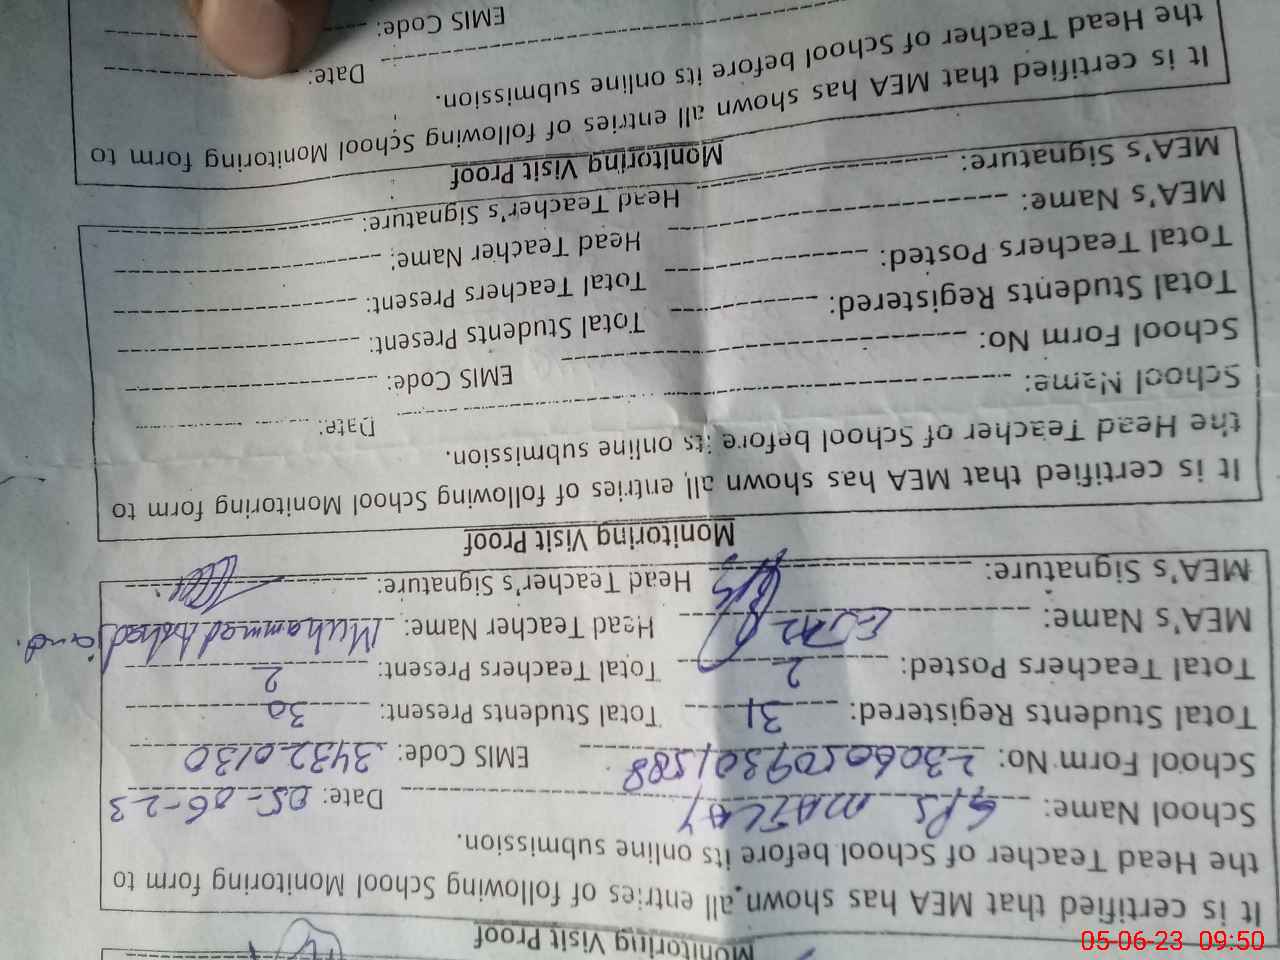 Monitoring Visit Proof
It is certified that MEA has shown all entries of following School Monitoring form to
the Head Teacher of School before its online submission.
School Name: GPS Date: 05-06-23
School Form No: EMIS Code: 34320130
Total Students Registered: 31 Total Students Present: 30
Total Teachers Posted: 2 Total Teachers Present: 2
MEA's Name: Head Teacher Name: Muhammad
MEA's Signature: Head Teacher's Signature:
Monitoring Visit Proof
It is certified that MEA has shown all entries of following School Monitoring form to
the Head Teacher of School before its online submission.
School Name: Date:
School Form No: EMIS Code:
Total Students Registered: Total Students Present:
Total Teachers Posted: Total Teachers Present:
MEA's Name: Head Teacher Name:
MEA's Signature: Head Teacher's Signature:
Monitoring Visit Proof
It is certified that MEA has shown all entries of following School Monitoring form to
the Head Teacher of School before its online submission.
Date:
EMIS Code:
05-06-23 09:50